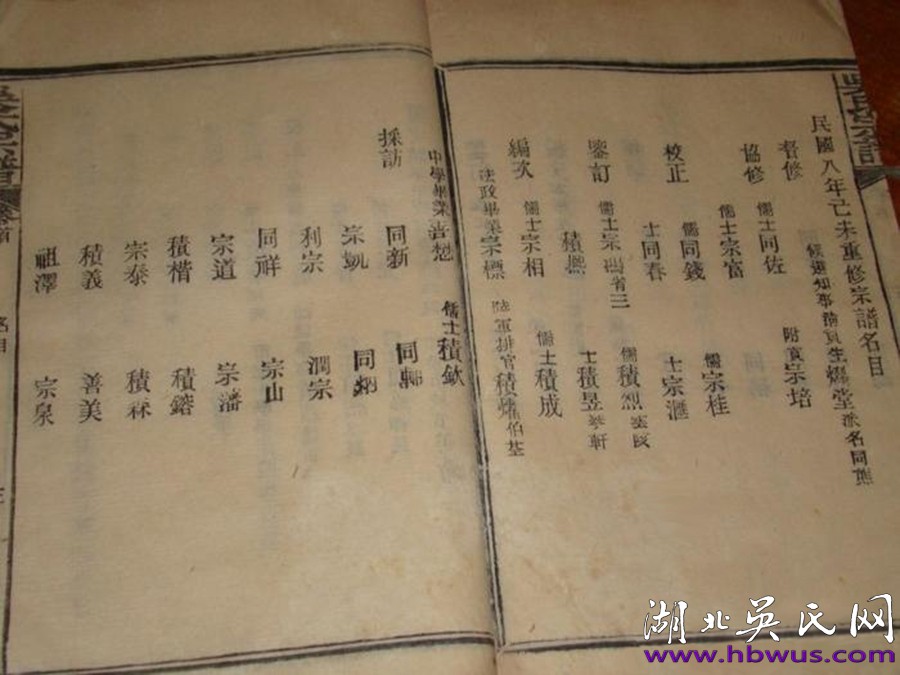 民國八年己未重修宗譜名目
督修 候選知事 貢生 堂 派名同熊
協修 儒士同佐 附貢宗培
儒士宗富 儒宗桂
校正 儒同錢
士同春 士宗滙
鑒訂 儒士宗 省三 儒積烈
積 士積昱
編次 儒士宗相 儒士積成
法政畢業宗標 陸軍排官積 伯荃
中學畢業 儒士積欽
採訪 同新 同
宗凱 同炳
利宗 潤宗
同祥 宗山
宗道 宗潘
積楷 積鎔
宗泰 積霖
積義 善美
祖澤 宗泉
卷首
名目
湖北吴氏网
www.hbwus.com